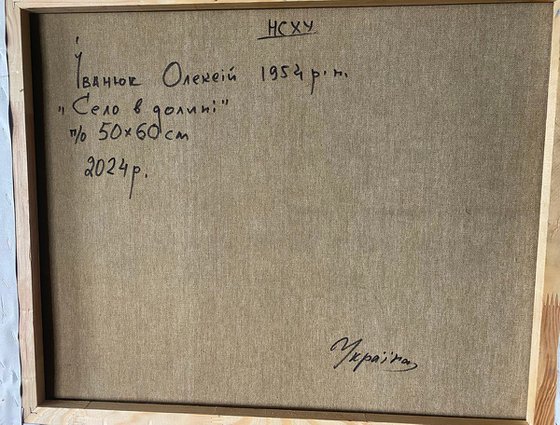 НСХУ
Іванюк Олексій 1954 р.н.
"Село в долині"
п/о 50×60 см
2024р.
Україна